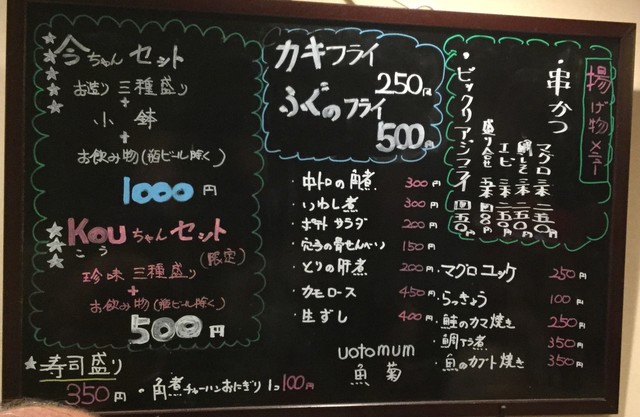 今ちゃんセット
お造り三種盛り
+
小鉢
+
お飲み物(瓶ビール除く)
1000円
Kouちゃんセット
こう
(限定)
珍味三種盛り
+
お飲み物(瓶ビール除く)
500円
寿司盛り
350円
・角煮チャーハンおにぎり 1コ100円
カキフライ
250円
ふぐのフライ
500円
・中トロの角煮 300円
・いわし煮 300円
・ポテトサラダ 200円
・穴子の骨せんべい 150円
・とりの肝煮 200円
・カモロース 450円
・生ずし 400円
uotomum
魚菊
揚げ物メニュー
・串かつ
マグロ 二本 二五〇円
エビ 二本 二五〇円
・ビックリアジフライ 四五〇円
・マグロユッケ 250円
・らっきょう 100円
・鮭のカマ焼き 250円
・鯛アラ煮 350円
・魚のカブト焼き 350円